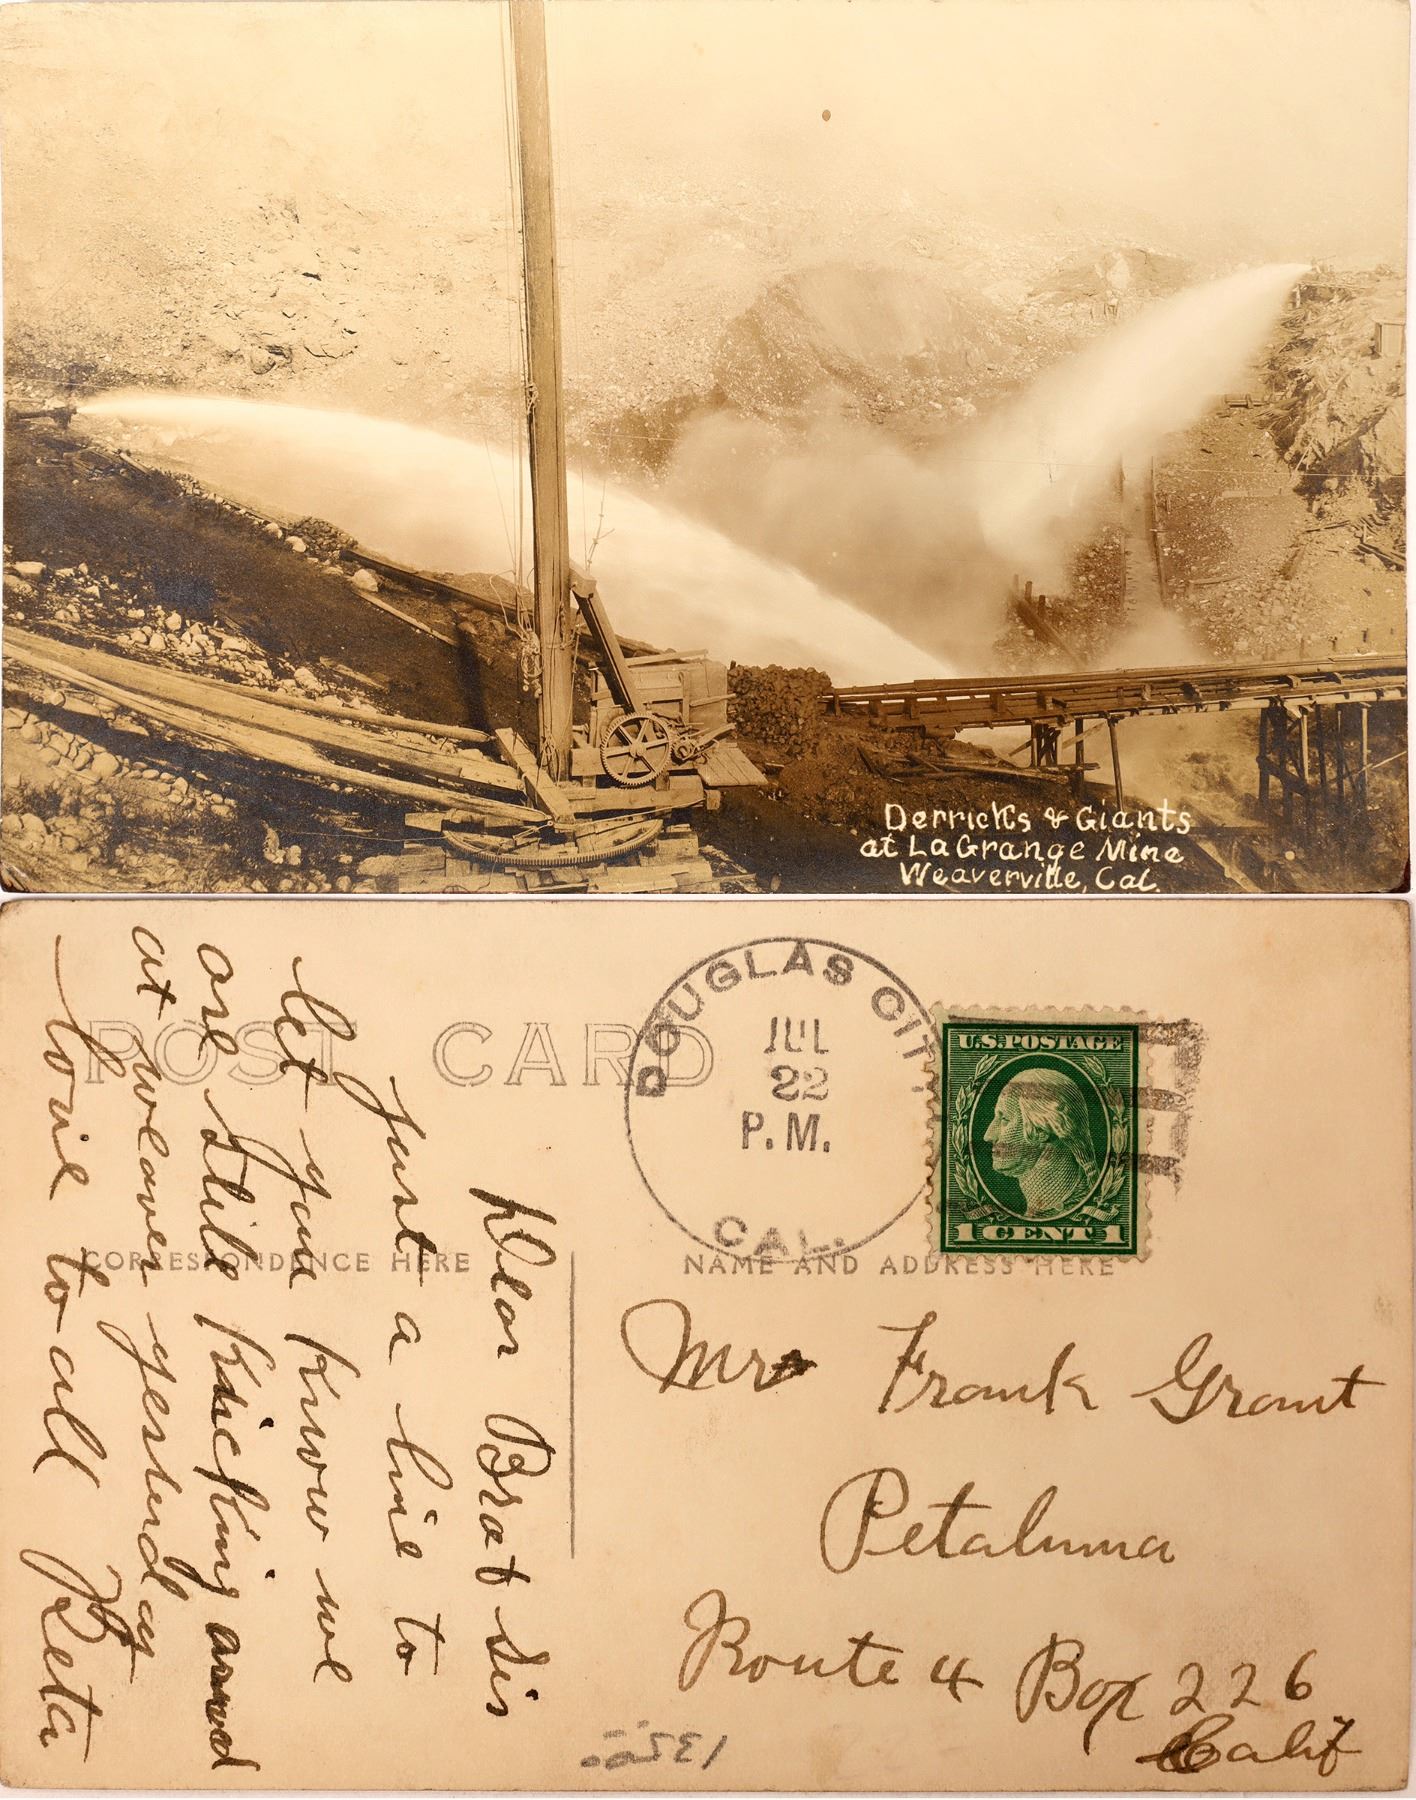 Derricks & Giants
at LaGrange Mine
Weaverville, Cal.
POST CARD
DOUGLAS CITY
JUL
22
P.M.
CAL.
U.S. POSTAGE
1 CENT 1
CORRESPONDENCE HERE
NAME AND ADDRESS HERE
Dear Bro & Sis
Just a line to
let you know we
are still Kicking around
at weaver yesterday
Love to all Reta
Mrs Frank Grant
Petaluma
Route 4 Box 226
Calif